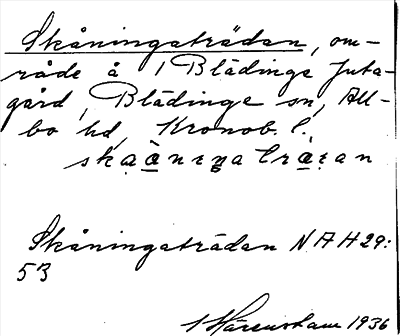 Skåningaträdan, om-
råde å 1 Blädinge Juta-
gård, Blädinge sn, All-
bo hd, Kronob. l.
Skåningaträdan NAH 29:
53
Härenstam 1936